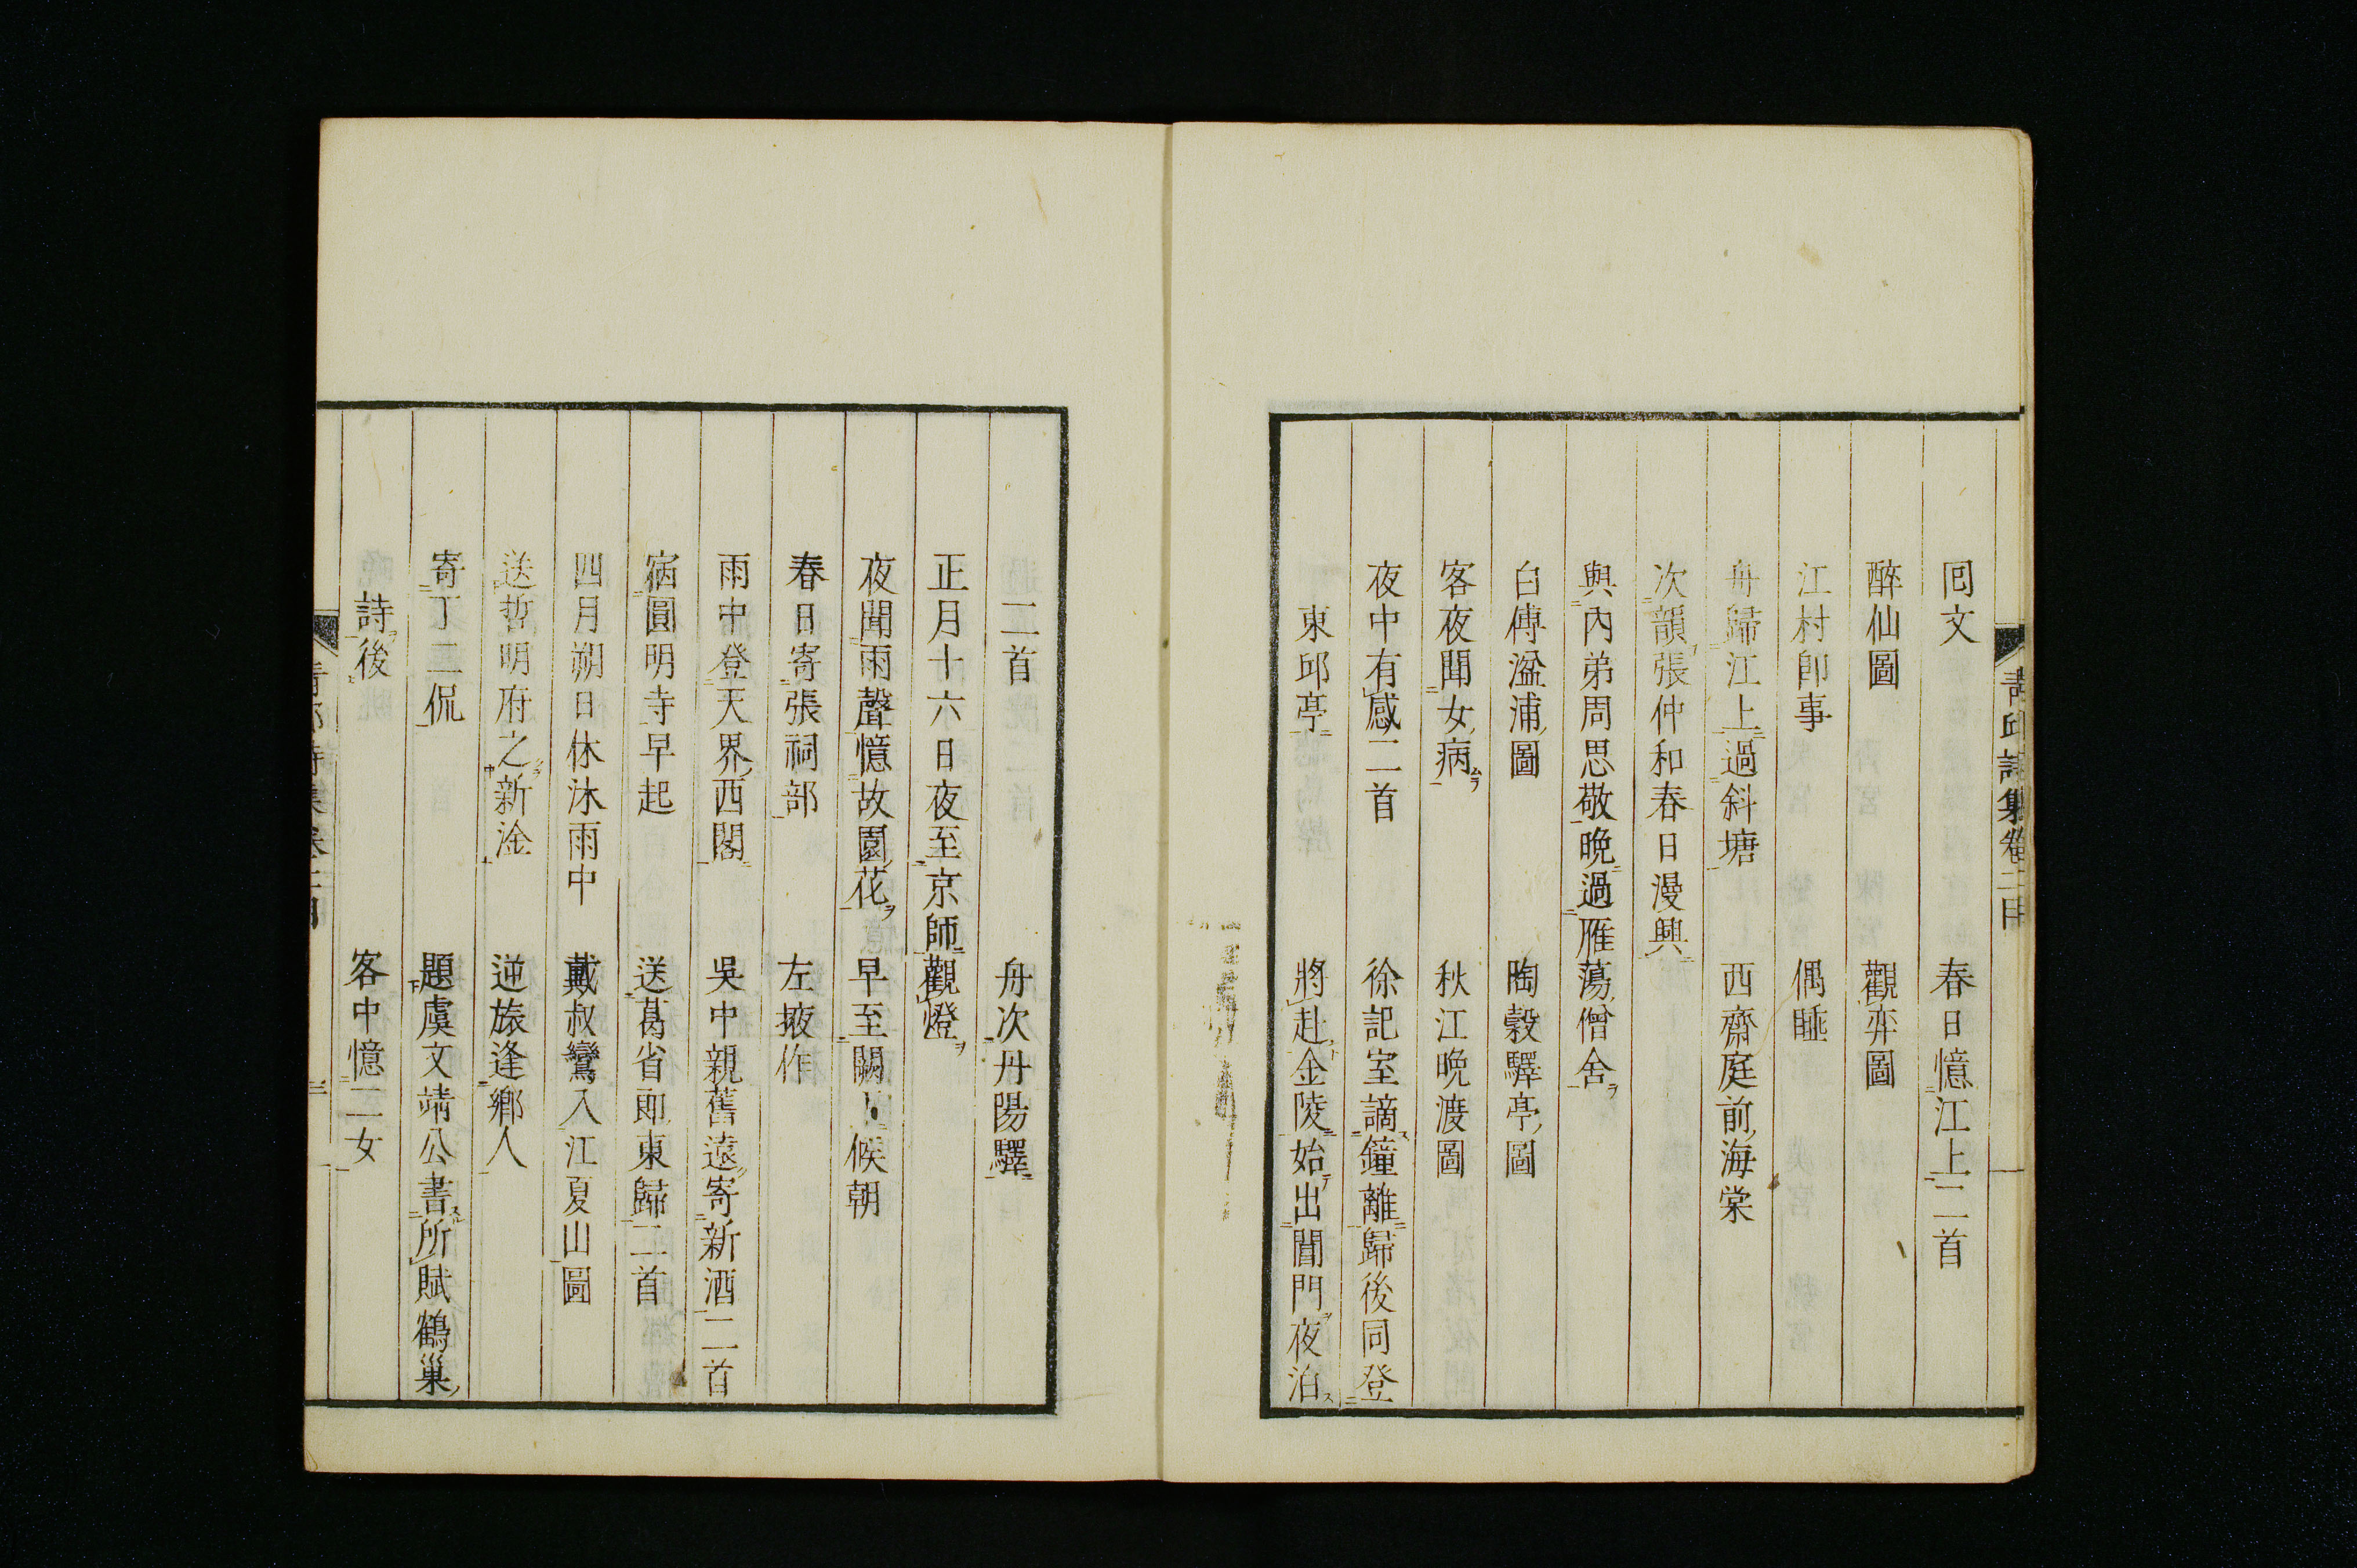 青邱詩集卷二目
囘文　春日憶江上二首
醉仙圖　觀弈圖
江村卽事　偶睡
舟歸江上過斜塘　西齋庭前海棠
次韻張仲和春日漫興
與內弟周思敬晚過雁蕩僧舍
白傅湓浦圖　陶穀驛亭圖
客夜聞女病　秋江晚渡圖
夜中有感二首　徐記室謫鐘離歸後同登
東邱亭　將赴金陵始出閶門夜泊
二首　舟次丹陽驛
正月十六日夜至京師觀燈
夜聞雨聲憶故園花　早至闕下候朝
春日寄張祠部　左掖作
雨中登天界西閣　吳中親舊遠寄新酒二首
宿圓明寺早起　送葛省郎東歸二首
四月朔日休沐雨中　戴叔鸞入江夏山圖
送哲明府之新淦　逆旅逢鄉人
寄丁二侃　題虞文靖公書所賦鶴巢
詩後　客中憶二女